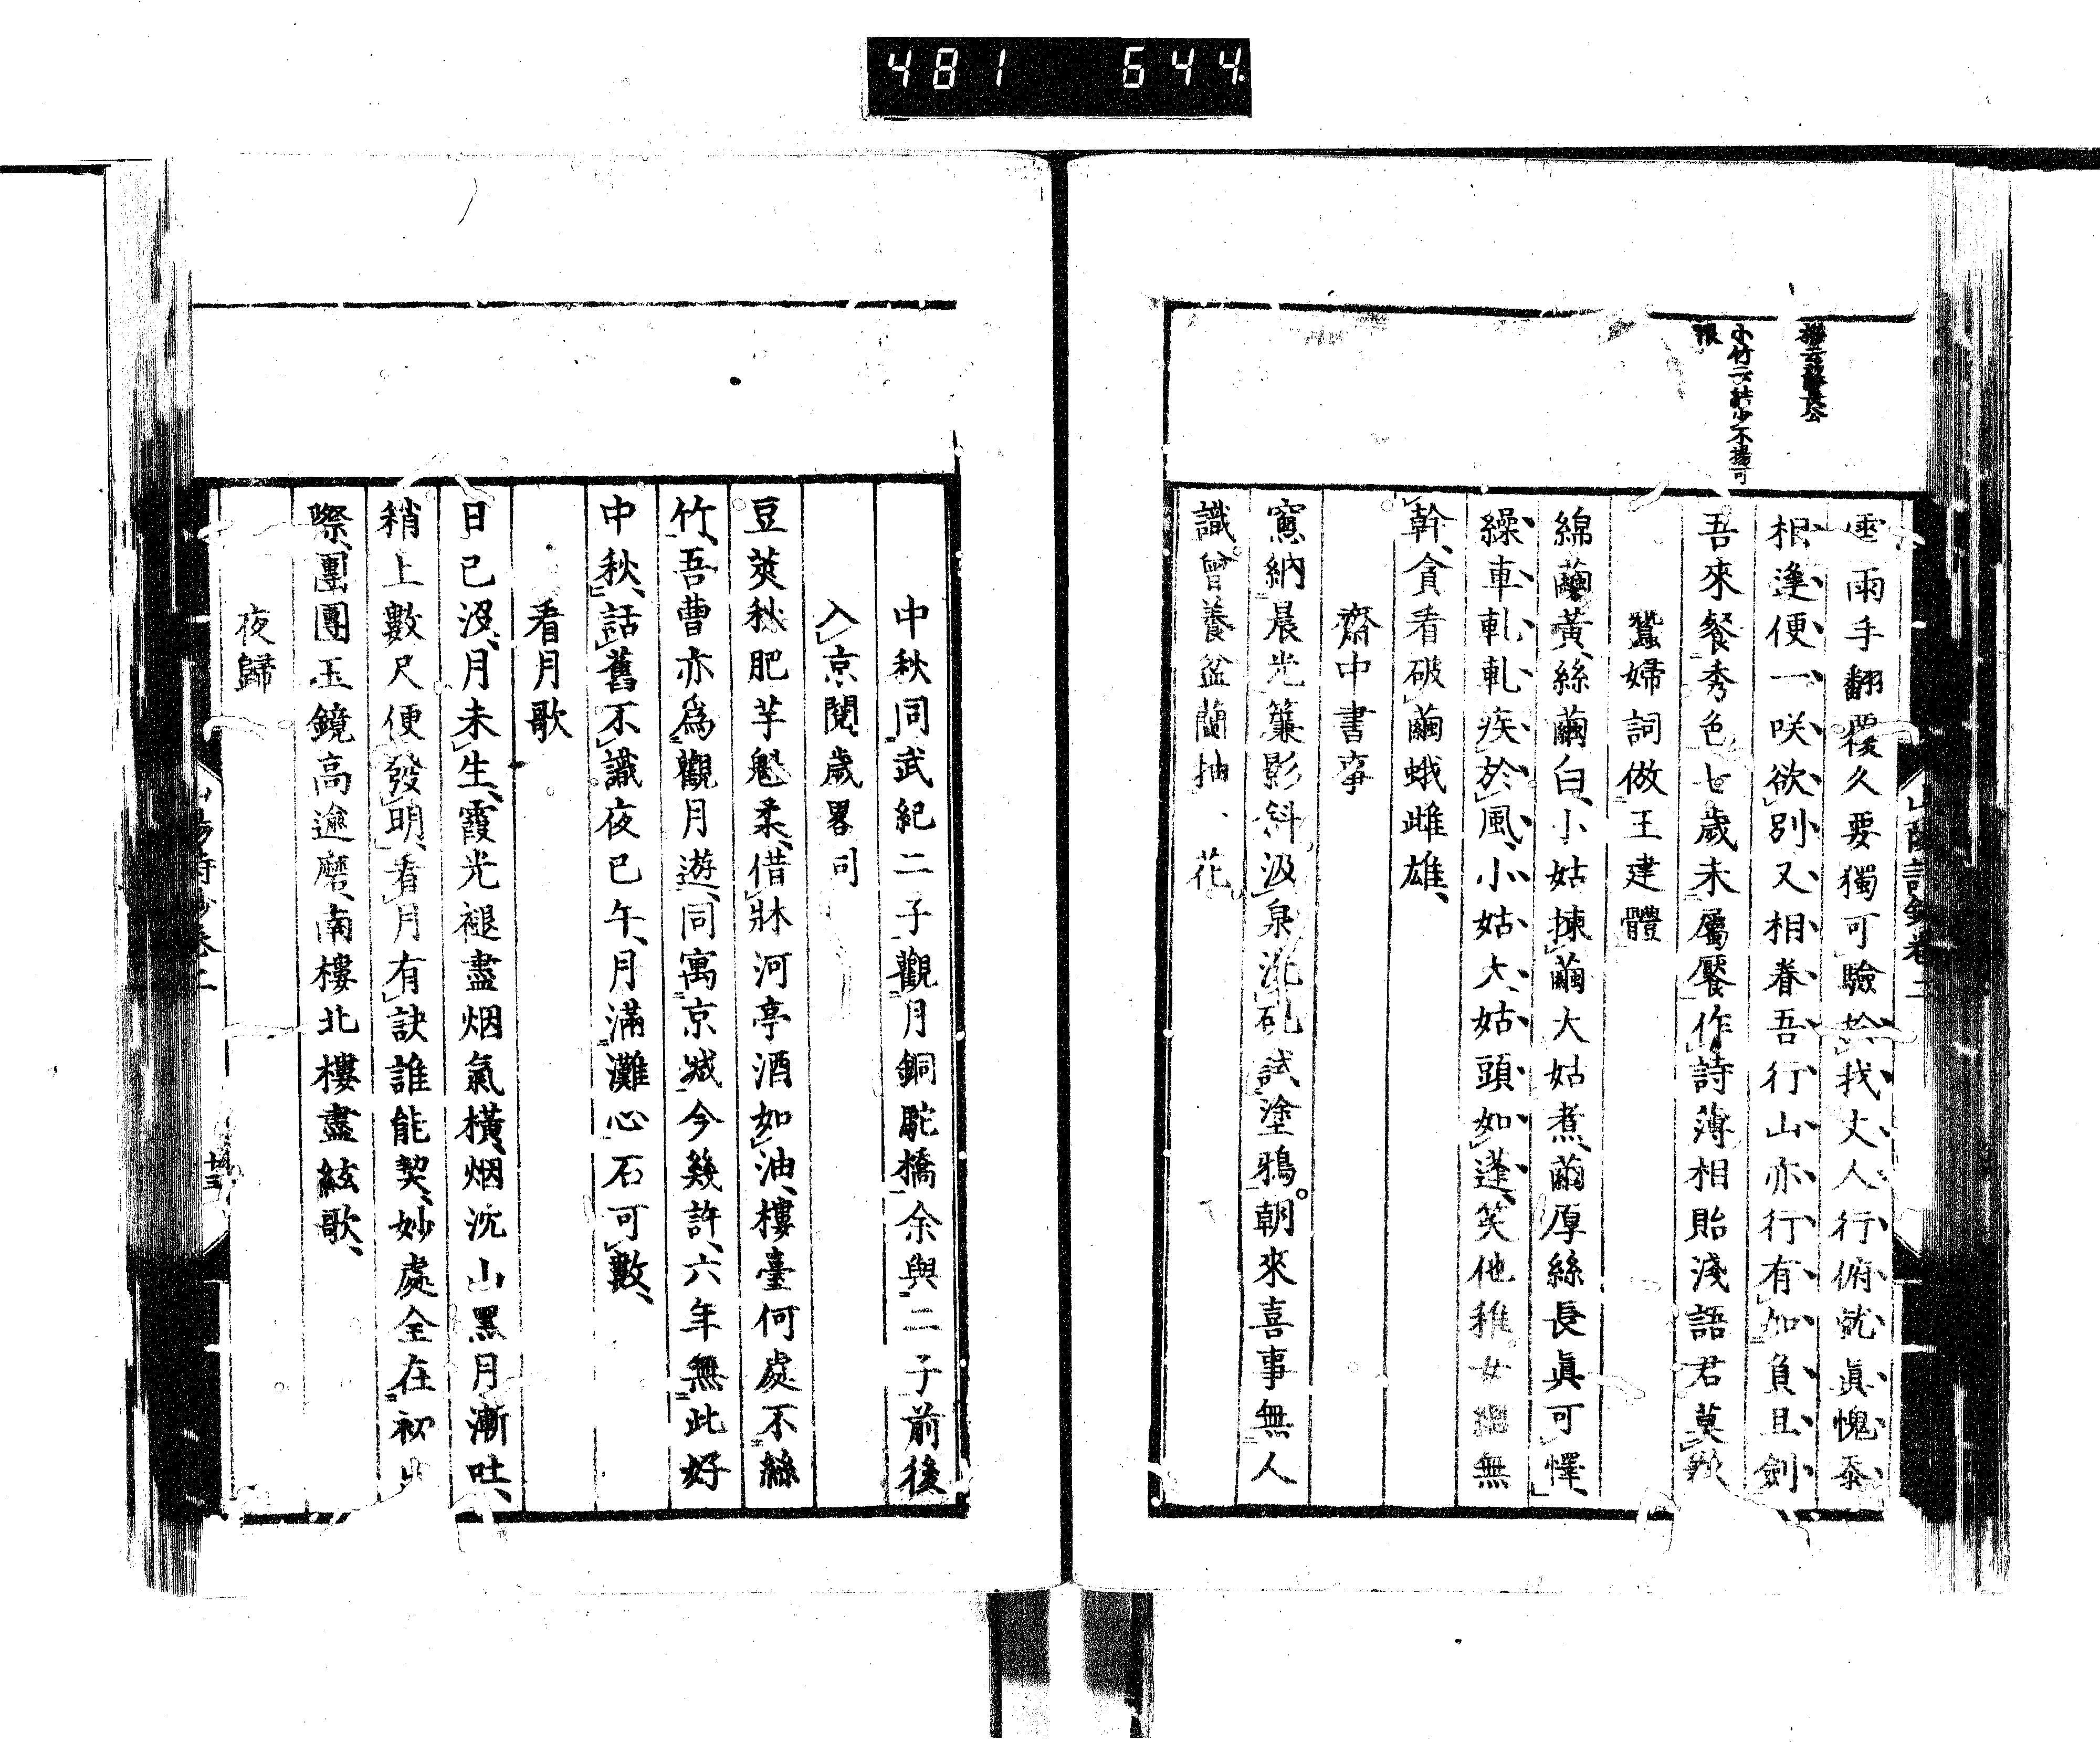 481 644
小竹云結少不揚可
恨
雲雨手翻覆久要獨可驗於我丈人行俯就眞愧忝
相逢便一咲欲別又相眷吾行山亦行有如負且劍
吾來餐秀色七歲未屬饜作詩薄相貽淺語君莫
蠶婦詞倣王建體
綿繭黃絲繭白小姑揀繭大姑煮繭厚絲長眞可懌
繰車軋軋疾於風小姑大姑頭如蓬笑他稚女無
幹貪看破繭蛾雌雄
齋中書事
窻納晨光簾影斜汲泉洗硯試塗鴉朝來喜事無人
識曾養盆蘭抽花
山陽詩鈔卷二
中秋同武紀二子觀月銅駝橋余與二子前後
入京閱歲畧同
豆莢秋肥芋魁柔借牀河亭酒如油樓臺何處不絲
竹吾曹亦爲觀月遊同寓京城今幾許六年無此好
中秋話舊不識夜已午月滿灘心石可數
看月歌
日已沒月未生霞光褪盡烟氣橫烟沈山黑月漸吐
稍上數尺便發明看月有訣誰能契妙處全在初出
際團團玉鏡高逾磨南樓北樓盡絃歌
夜歸
山陽詩鈔卷二
十三